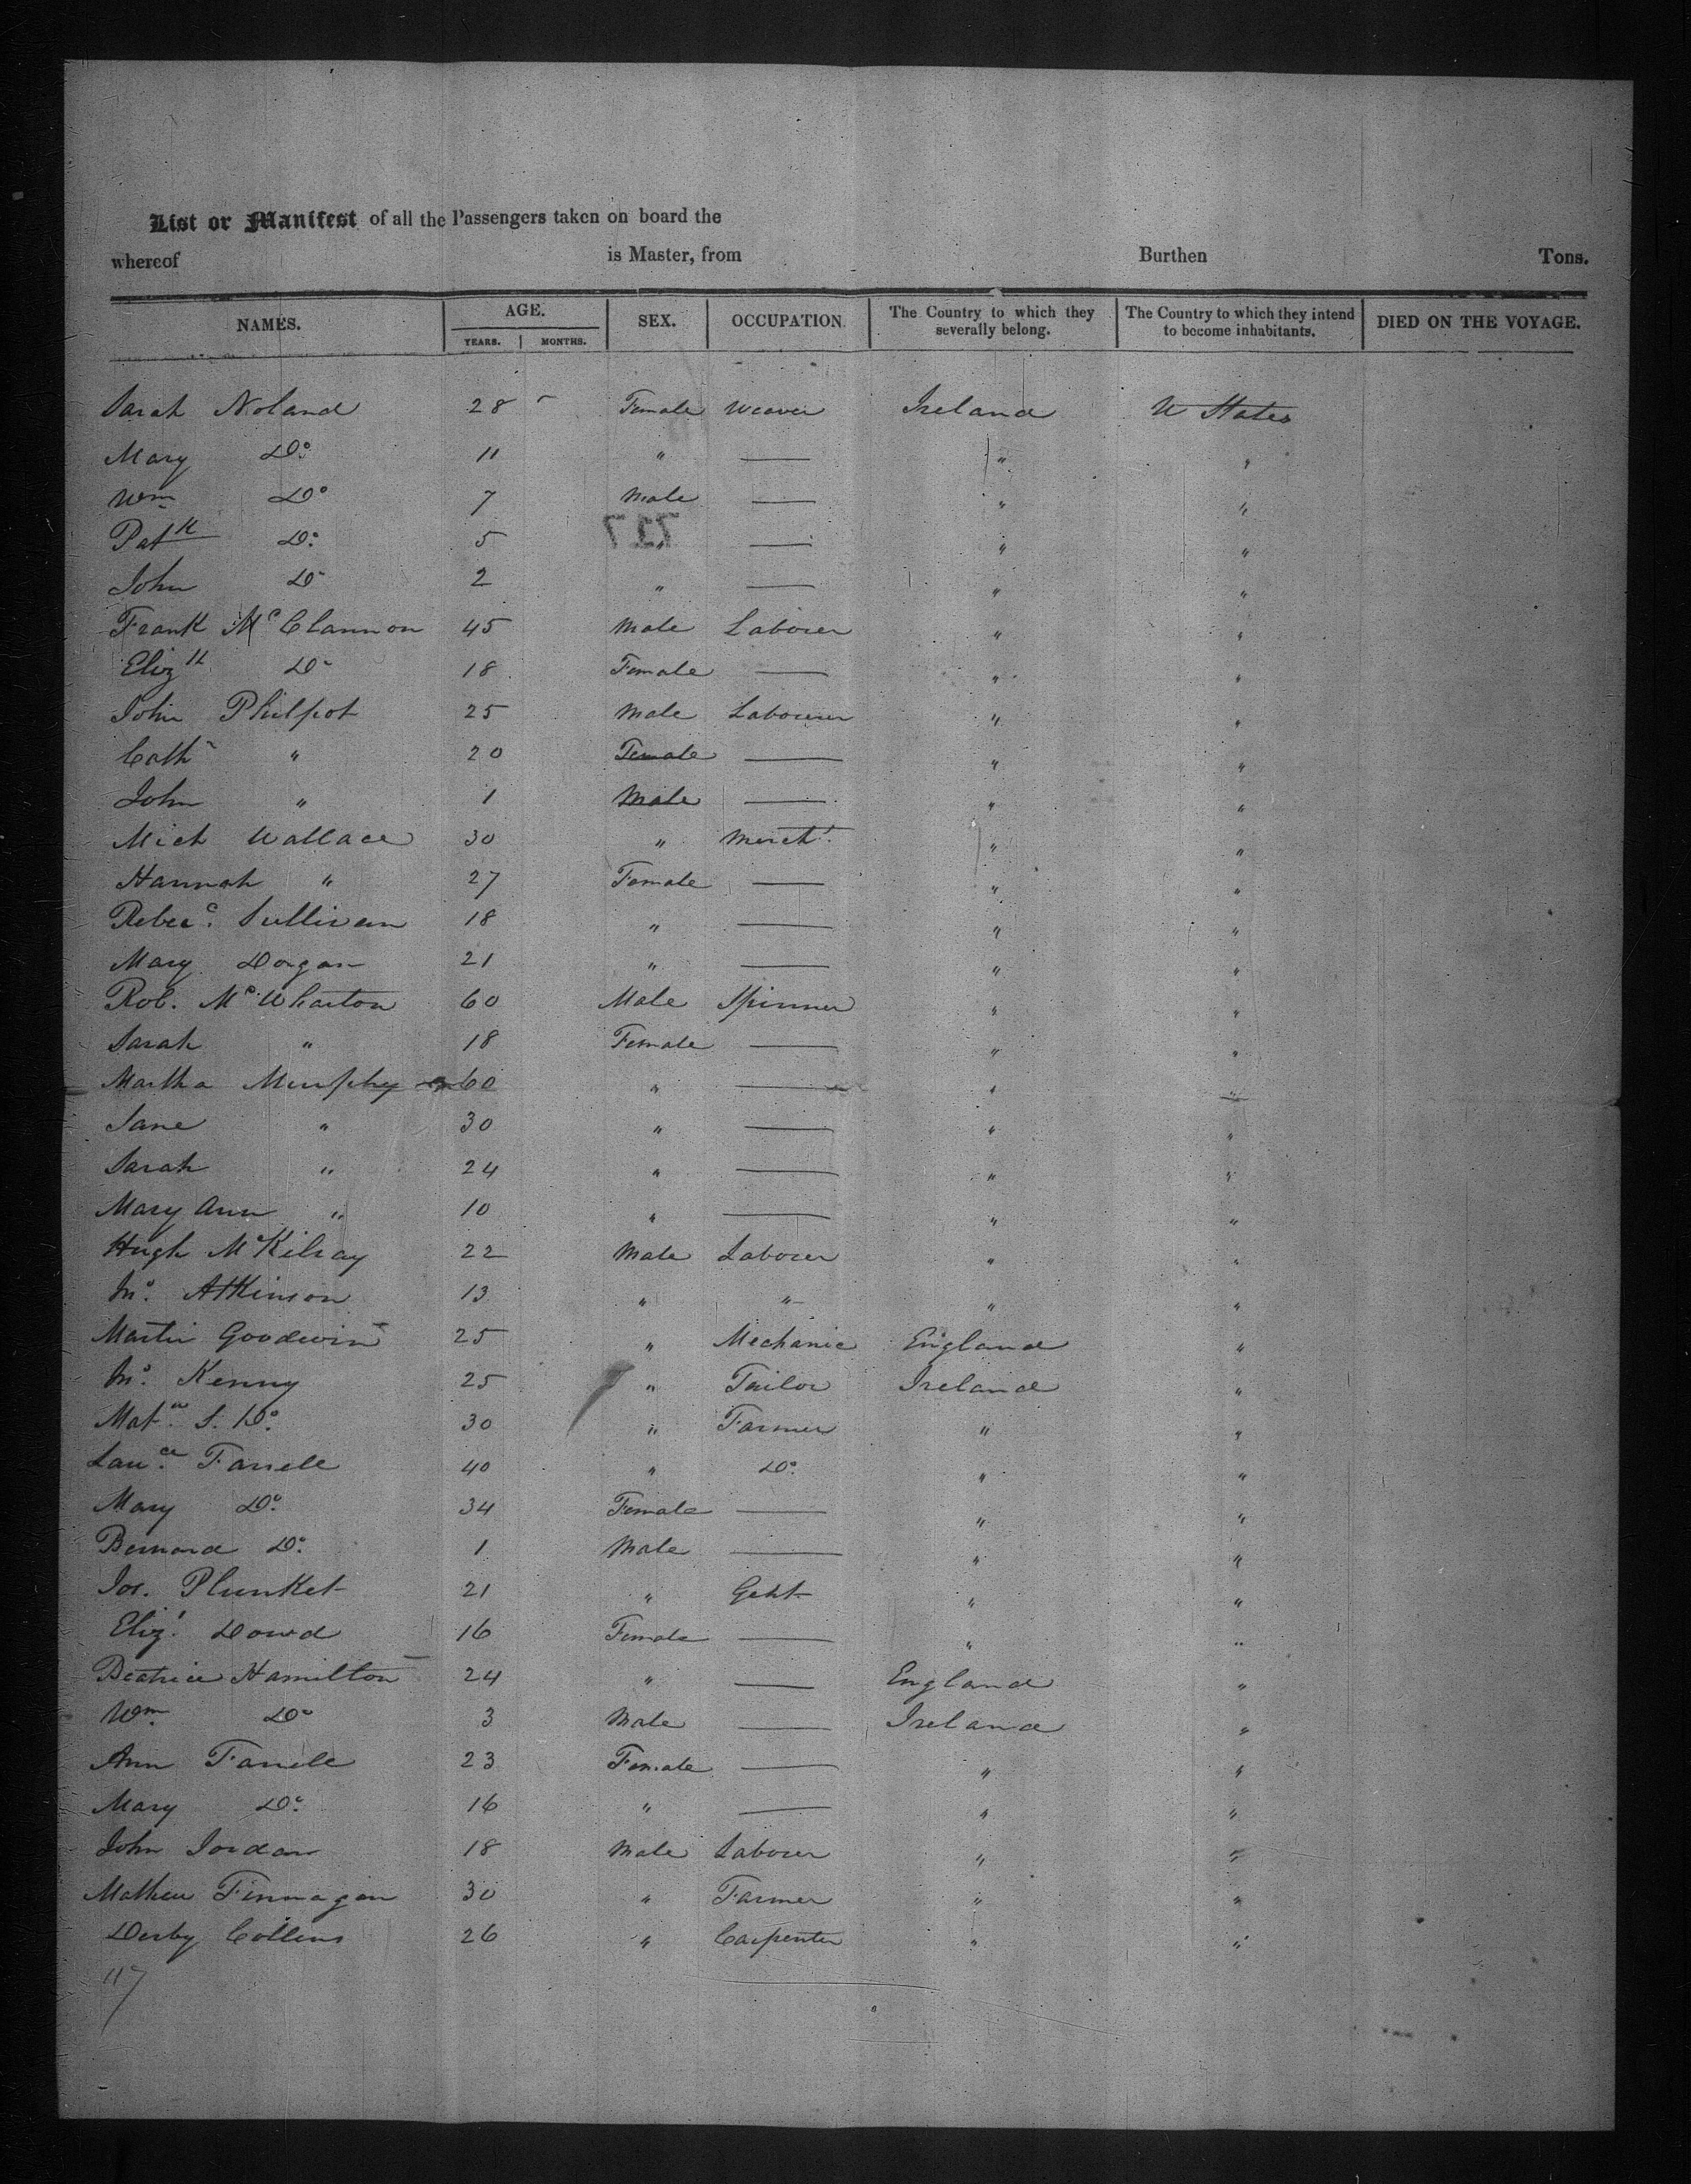 List or Manifest of all the Passengers taken on board the
whereof is Master, from Burthen Tons.
NAMES. AGE. YEARS. MONTHS. SEX. OCCUPATION. The Country to which they severally belong. The Country to which they intend to become inhabitants. DIED ON THE VOYAGE.
Sarah Noland 28 Female Weaver Ireland U States
Mary Do. 11 " — " "
Wm Do 7 Male — " "
Patk Do. 5 — " "
John Do 2 " — " "
Frank McClannon 45 Male Laborer " "
Elizth Do 18 Female — " "
John Philpot 25 Male Labourer " "
Cath " 20 Female — " "
John " 1 Male — " "
Mich Wallace 30 " Mercht. " "
Hannah " 27 Female — " "
Rebecc. Sullivan 18 " — " "
Mary Dogan 21 " — " "
Rob. McWharton 60 Male Spinner " "
Sarah " 18 Female — " "
Martha Murphy 60 " — " "
Jane " 30 " — " "
Sarah " 24 " — " "
Mary Ann " 10 " — " "
Hugh McKilray 22 Male Laborer " "
Jno. Atkinson 13 " " " "
Martin Goodwin 25 " Mechanic England "
Jno. Kenny 25 " Tailor Ireland "
Matw. S. Do. 30 " Farmer " "
Lauce. Farrele 40 " Do. " "
Mary Do. 34 Female — " "
Bernard Do. 1 Male — " "
Jos. Plunket 21 " Gent " "
Eliz. Dowd 16 Female — " "
Beatrice Hamilton 24 " — England "
Wm Do 3 Male — Ireland "
Ann Farrele 23 Female — " "
Mary Do. 16 " — " "
John Jordan 18 Male Laborer " "
Mathew Finnagan 30 " Farmer " "
Derby Collins 26 " Carpenter " "
117